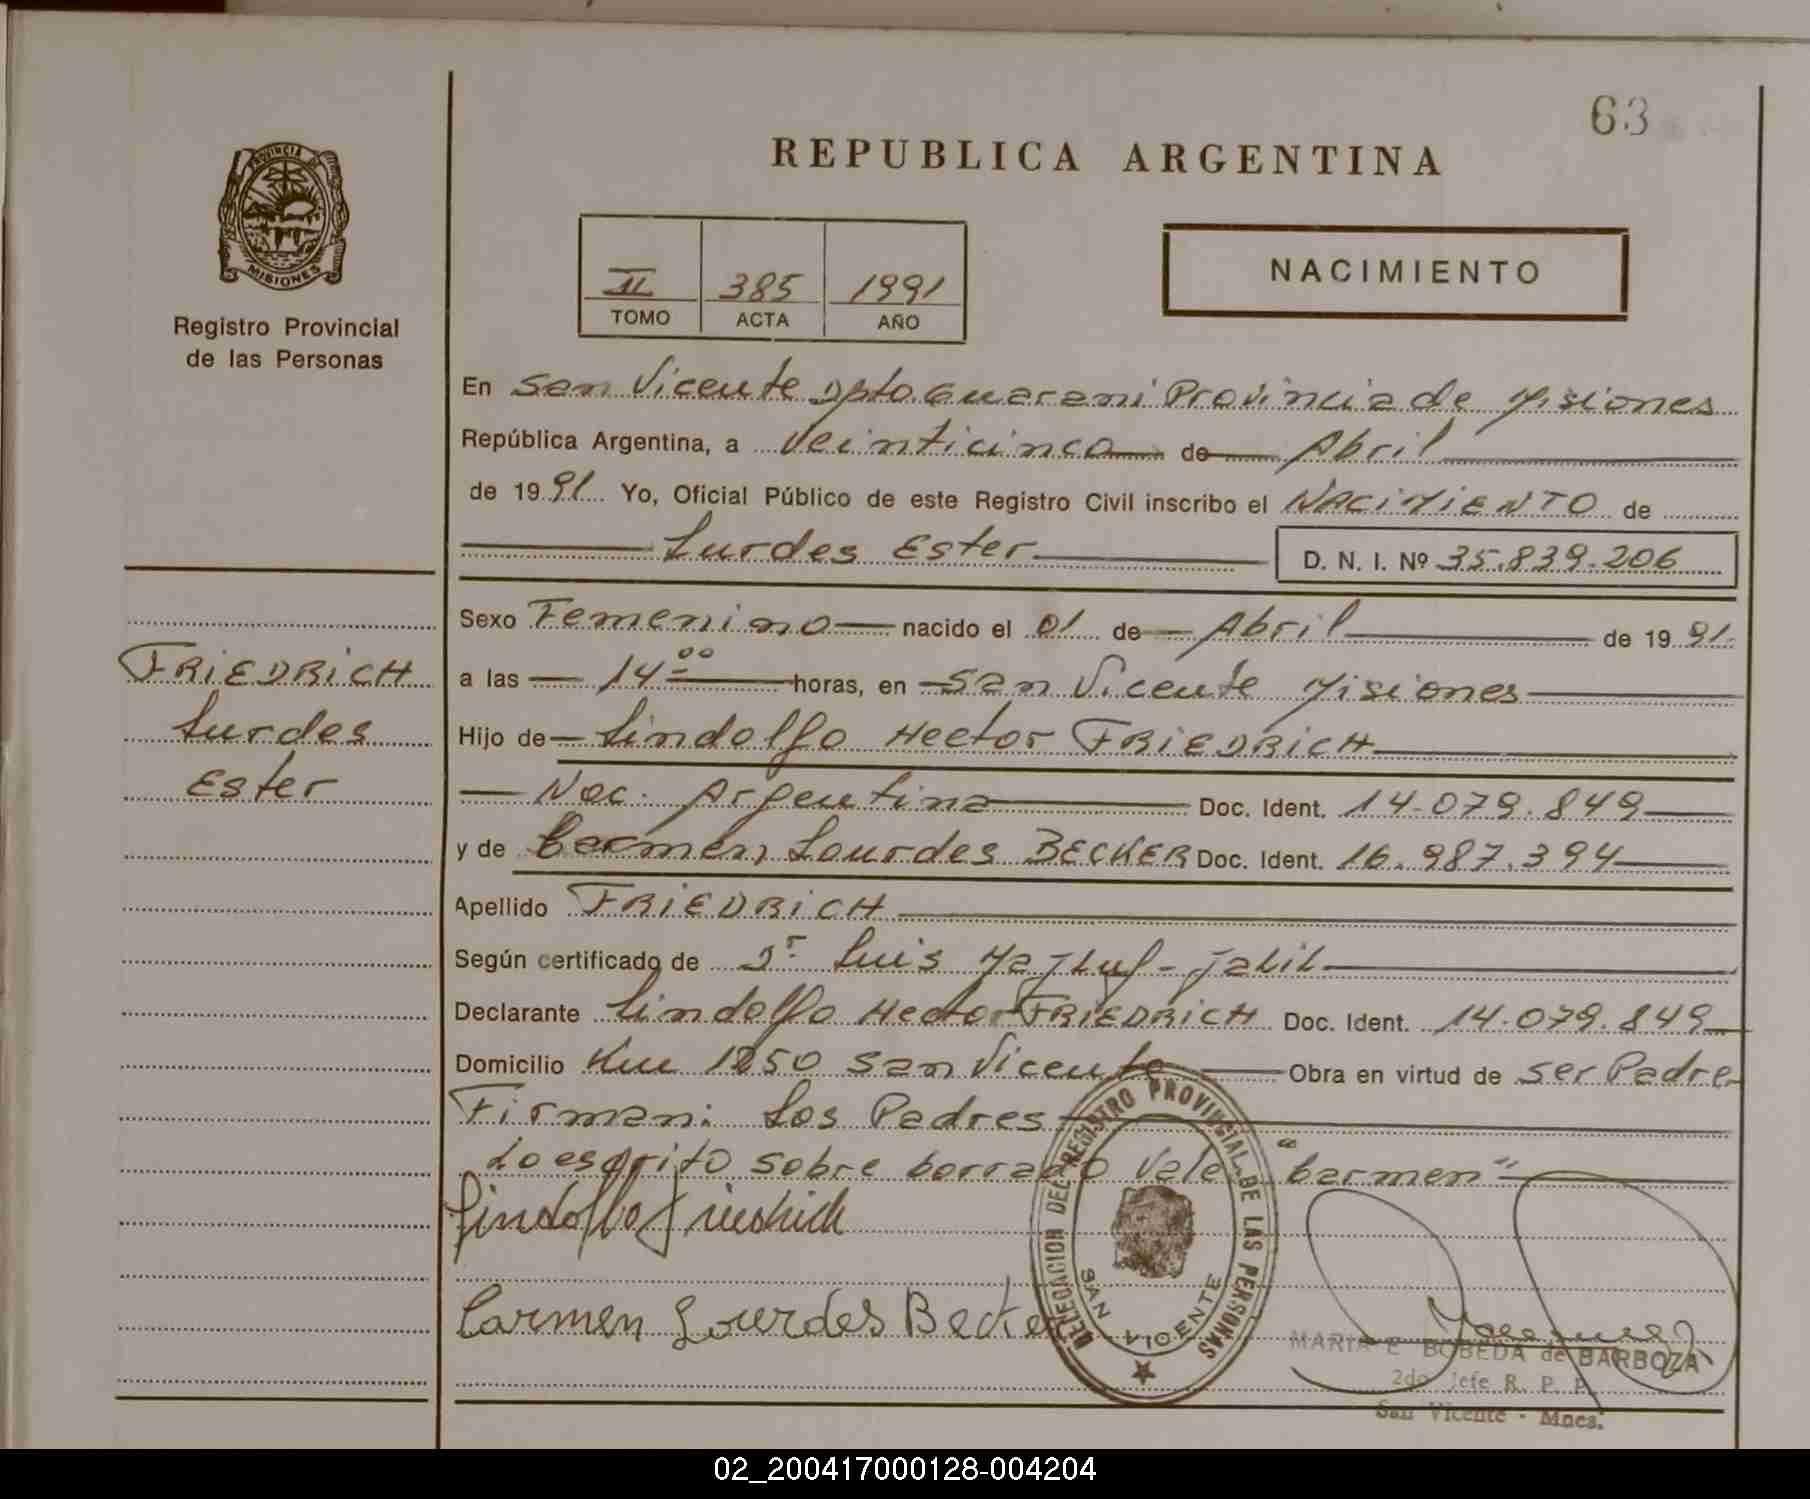 63
REPUBLICA ARGENTINA
PROVINCIA DE
MISIONES
Registro Provincial
de las Personas
II 385 1991
TOMO ACTA AÑO
NACIMIENTO
En San Vicente Dpto. Guarani Provincia de Misiones
República Argentina, a veinticinco de Abril
de 1991 Yo, Oficial Público de este Registro Civil inscribo el NACIMIENTO de
Lurdes Ester D. N. I. Nº 35.839.206
Sexo Femenino nacido el 01 de Abril de 1991
FRIEDRICH
Lurdes
Ester
a las 14 00 horas, en San Vicente Misiones
Hijo de Lindolfo Hector FRIEDRICH
Nac. Argentina Doc. Ident. 14.079.849
y de Carmen Lourdes BECKER Doc. Ident. 16.987.394
Apellido FRIEDRICH
Según certificado de Dr. Luis Jalil
Declarante Lindolfo Hector FRIEDRICH Doc. Ident. 14.079.849
Domicilio Km 1250 San Vicente Obra en virtud de ser Padre
Firman: Los Padres
Lo escrito sobre borrado vale "Carmen"
Lindolfo Friedrich
Carmen Lourdes Becker
DELEGACION DEL REGISTRO PROVINCIAL DE LAS PERSONAS
SAN VICENTE
MARIA E BOBEDA de BARBOZA
2do Jefe R. P. P.
San Vicente - Mnes.
02_200417000128-004204